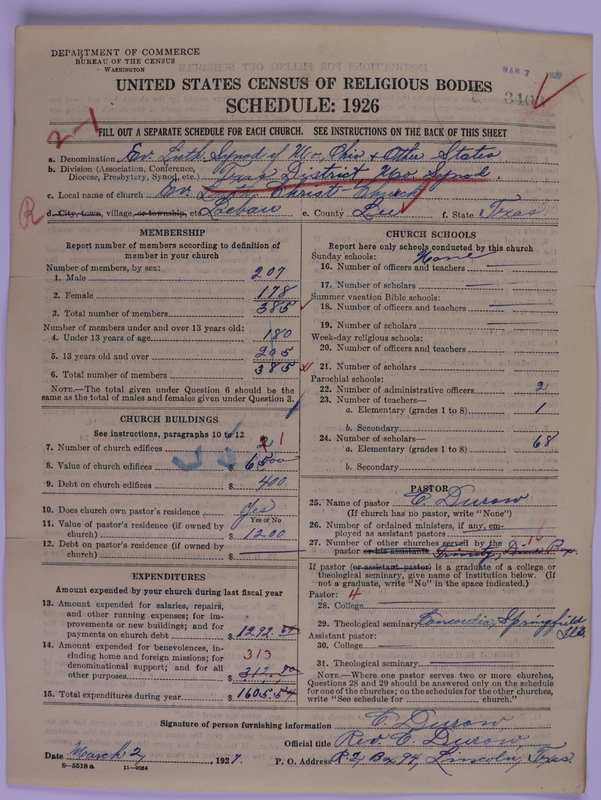 DEPARTMENT OF COMMERCE
BUREAU OF THE CENSUS
WASHINGTON
MAR 7
UNITED STATES CENSUS OF RELIGIOUS BODIES
SCHEDULE: 1926
2-1
FILL OUT A SEPARATE SCHEDULE FOR EACH CHURCH. SEE INSTRUCTIONS ON THE BACK OF THIS SHEET
a. Denomination Ev. Luth. Synod of Mo. Ohio & Other States
b. Division (Association, Conference, Diocese, Presbytery, Synod, etc.) Texas District Mo. Synod.
c. Local name of church Ev. Luth. Christ Church
R
d. City, town, village, or township, etc. Loebau e. County Lee f. State Texas
MEMBERSHIP
Report number of members according to definition of member in your church
Number of members, by sex:
1. Male 207
2. Female 178
3. Total number of members 385
Number of members under and over 13 years old:
4. Under 13 years of age 180
5. 13 years old and over 205
6. Total number of members 385
NOTE.—The total given under Question 6 should be the same as the total of males and females given under Question 3.
CHURCH BUILDINGS
See instructions, paragraphs 10 to 12
7. Number of church edifices 2 1
8. Value of church edifices $ 6500
9. Debt on church edifices $ 400
10. Does church own pastor's residence Yes
Yes or No
11. Value of pastor's residence (if owned by church) $ 1200
12. Debt on pastor's residence (if owned by church) $
EXPENDITURES
Amount expended by your church during last fiscal year
13. Amount expended for salaries, repairs, and other running expenses; for improvements or new buildings; and for payments on church debt $ 1292
14. Amount expended for benevolences, including home and foreign missions; for denominational support; and for all other purposes 313 $
15. Total expenditures during year $ 1605.54
CHURCH SCHOOLS
Report here only schools conducted by this church
Sunday schools: None
16. Number of officers and teachers
17. Number of scholars
Summer vacation Bible schools:
18. Number of officers and teachers
19. Number of scholars
Week-day religious schools:
20. Number of officers and teachers
21. Number of scholars
Parochial schools:
22. Number of administrative officers 2
23. Number of teachers—
a. Elementary (grades 1 to 8) 1
b. Secondary
24. Number of scholars—
a. Elementary (grades 1 to 8) 68
b. Secondary
PASTOR
25. Name of pastor E. Durow
(If church has no pastor, write "None")
26. Number of ordained ministers, if any, employed as assistant pastors
27. Number of other churches served by the pastor or his assistants 1 Trinity,
If pastor (or assistant pastor) is a graduate of a college or theological seminary, give name of institution below. (If not a graduate, write "No" in the space indicated.)
Pastor: 4
28. College
29. Theological seminary Concordia, Springfield Ill.
Assistant pastor:
30. College
31. Theological seminary
NOTE.—Where one pastor serves two or more churches, Questions 28 and 29 should be answered only on the schedule for one of the churches; on the schedules for the other churches, write "See schedule for church."
Signature of person furnishing information E. Durow
Official title Rev. E. Durow
Date March 2, 1927 P. O. Address R. 2, Box 94, Lincoln, Texas.
8—5518a 11—9364